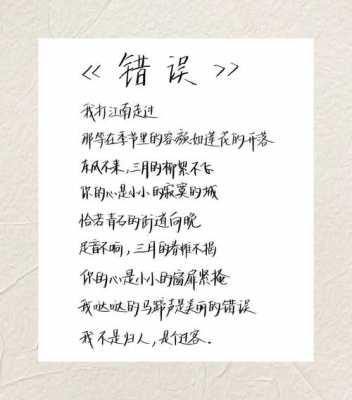 《错误》
我打江南走过
那等在季节里的容颜如莲花的开落
东风不来,三月的柳絮不飞
你的心是小小的寂寞的城
恰若青石的街道向晚
足音不响,三月的春帷不揭
你的心是小小的窗扉紧掩
我哒哒的马蹄声是美丽的错误
我不是归人,是个过客.